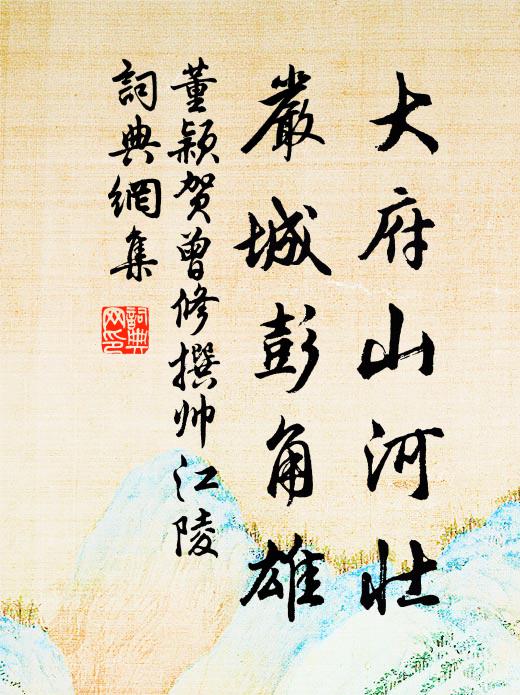 大府山河壮
嚴城彭角雄
董颖贺曾修撰帅江陵
詞典網集
詞典
网印